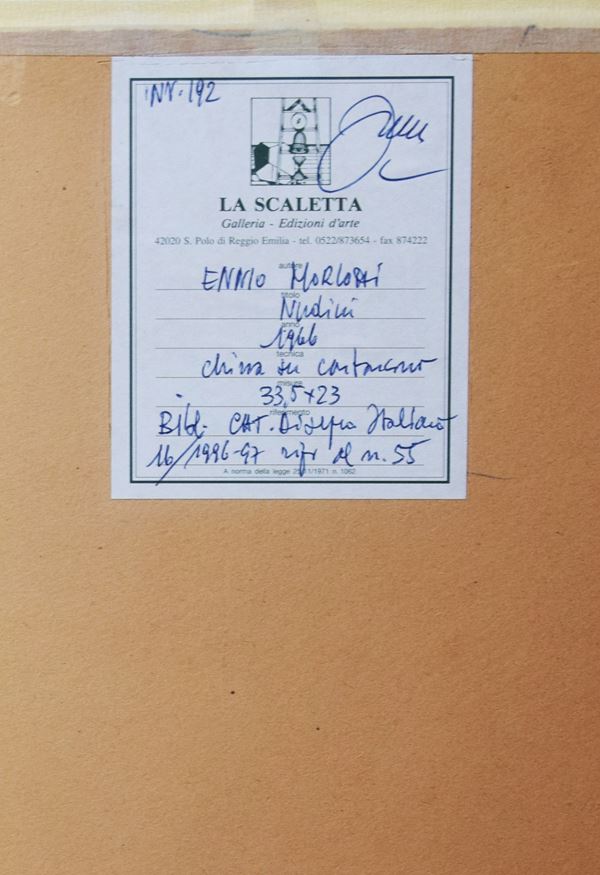 INV. 192
LA SCALETTA
Galleria - Edizioni d'arte
42020 S. Polo di Reggio Emilia - tel. 0522/873654 - fax 874222
autore
ENNIO MORLOTTI
titolo
Nudini
anno
1966
tecnica
china su cartoncino
misure
33,5x23
riferimento
Bibl. CAT. Disegno Italiano
16/1996-97 ripr al n. 55
A norma della legge 25/11/1971 n. 1062